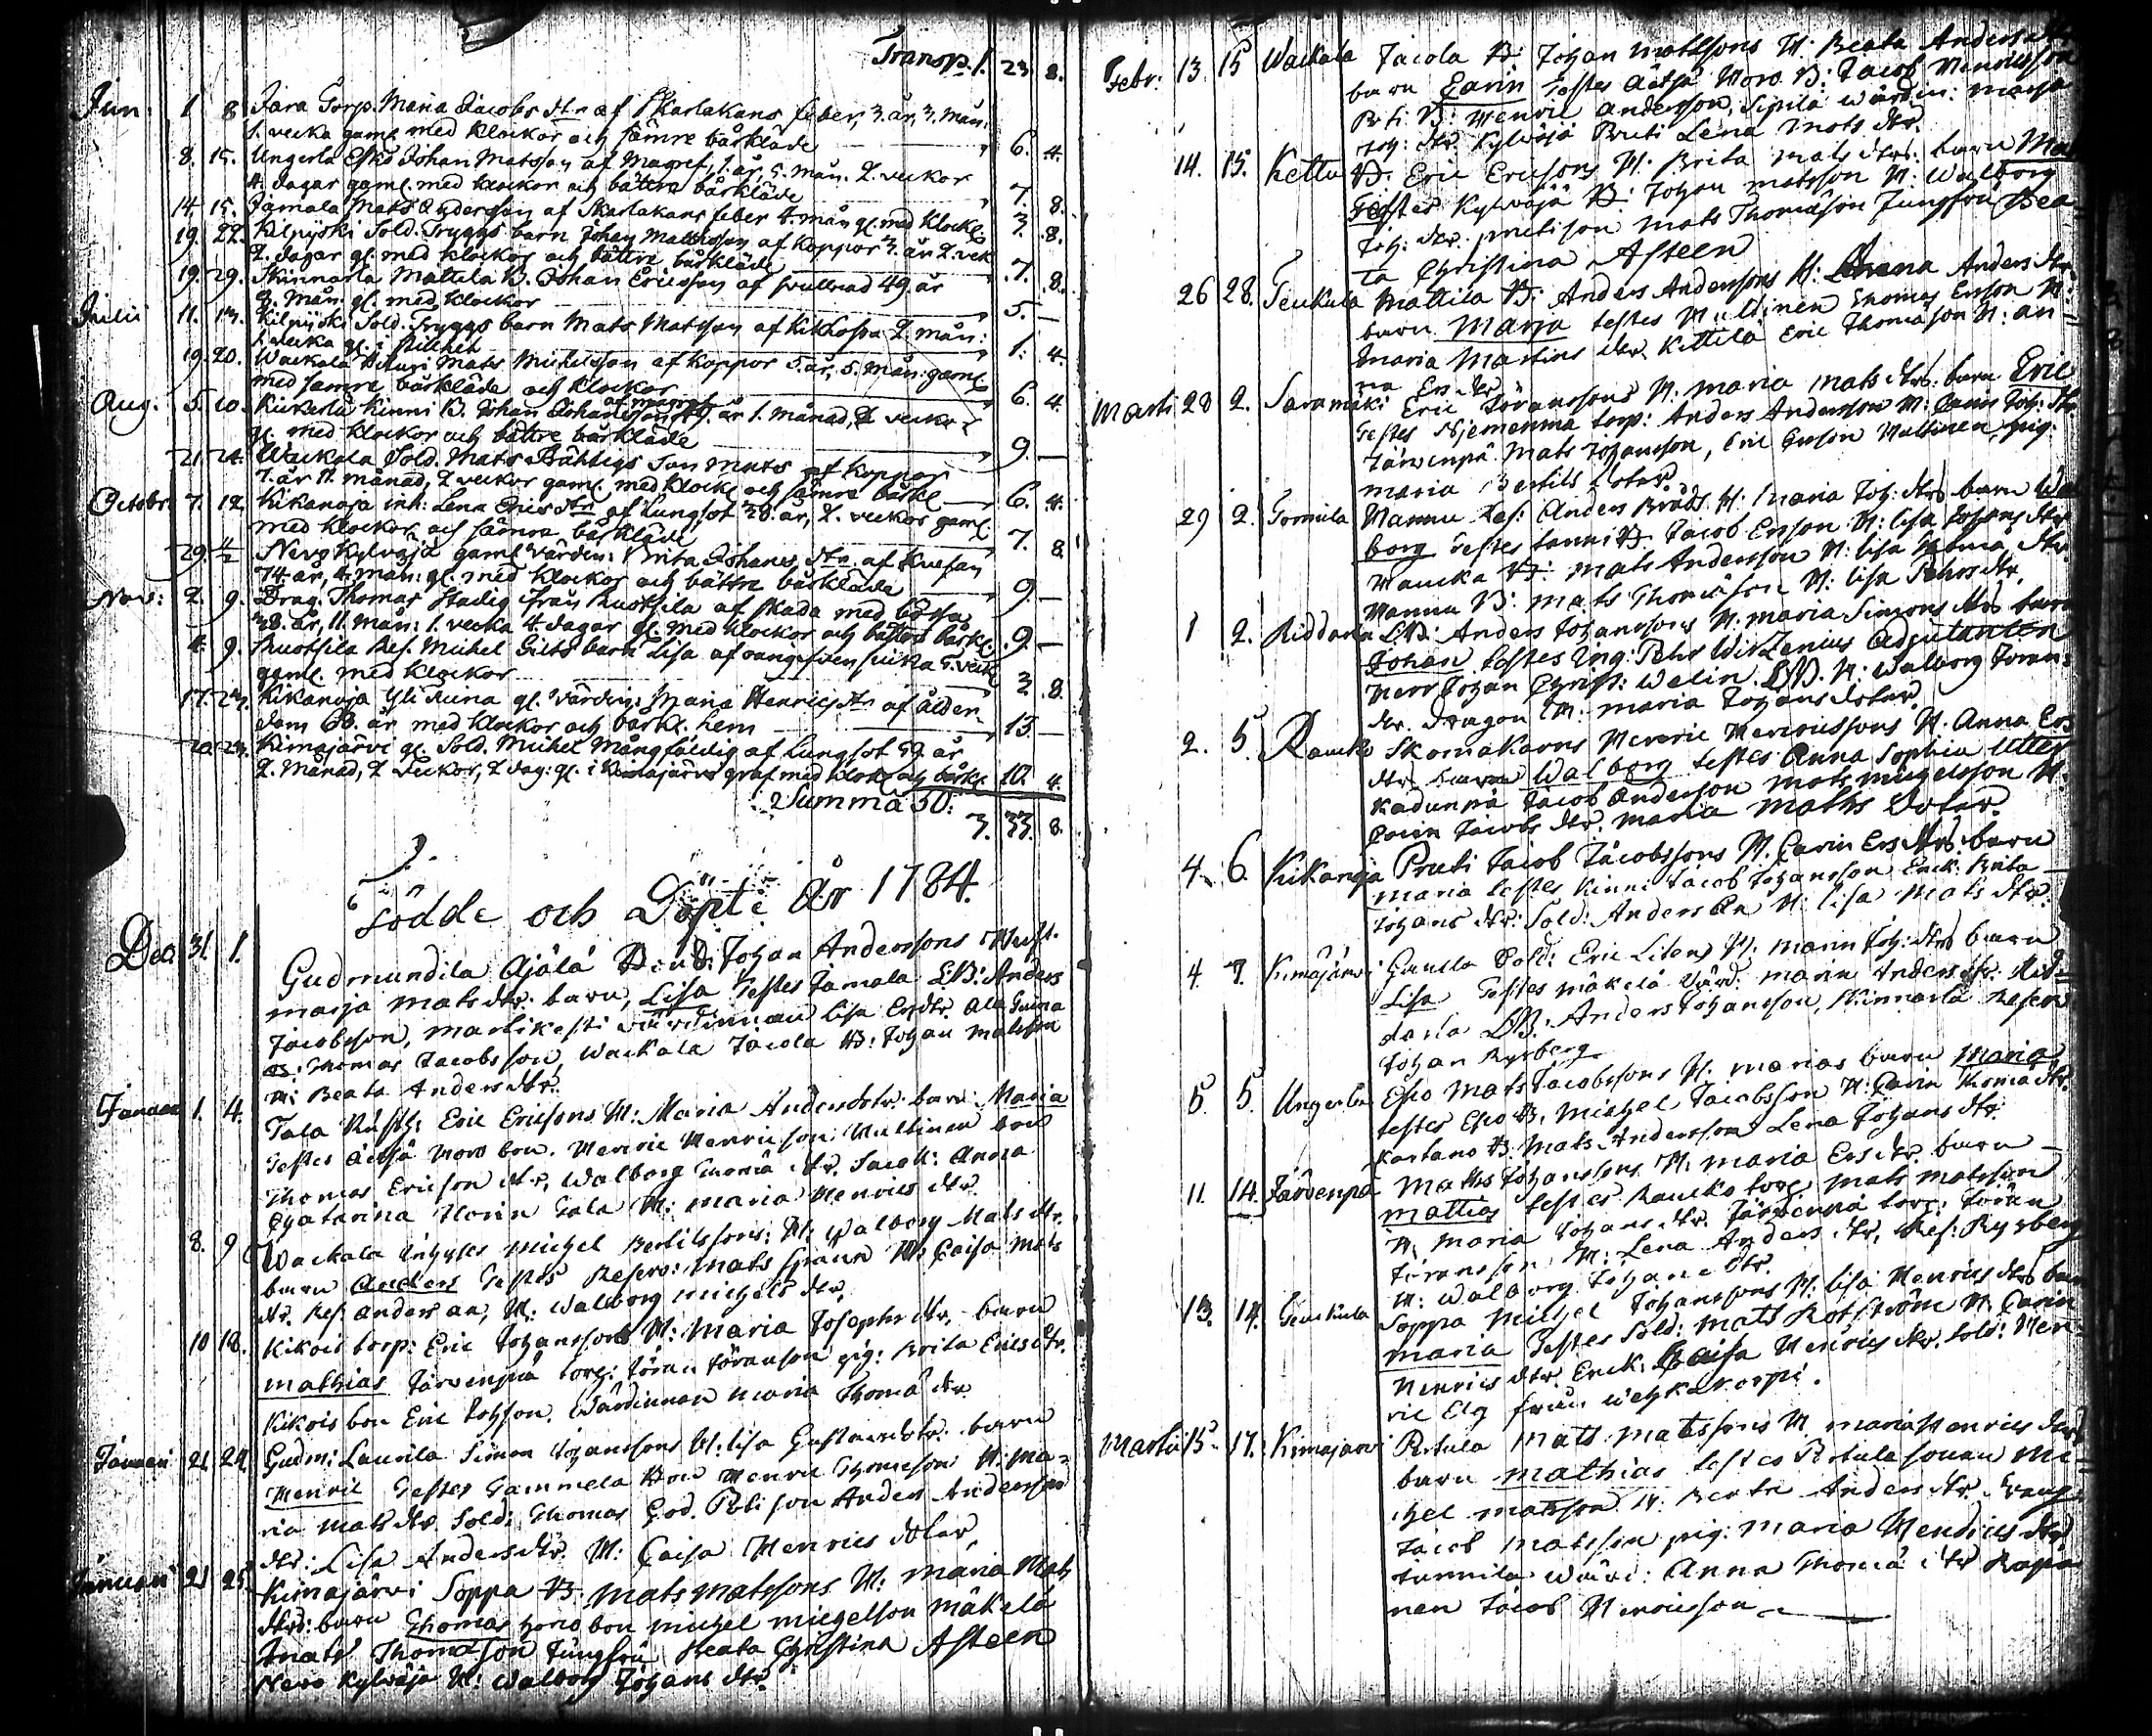 Transp. 1. 23. 8.
Jun: 1 8 Jara Torp. Maria Jacobs dtr af Skarlakans feber, 3. år, 3. mån:
1. vecka gaml. med klockor och sämre bårkläde 6. 4.
8. 15. Ungerla Esko Johan Matsson af Magref, 1. år, 5. mån. 2. veckor
4. dagar gaml. med klockor och bättre bårkläde 7. 8.
14. 15. Jamala Mats Andersson af Skarlakans feber 4. mån gl. med klock: 3. 8.
19. 22. Kilpijoki Sold. Tryggs barn Johan Mattsson af Koppor 3. år 2. vek
2. dagar gl. med klockor och bättre bårkläde 7. 8.
19. 29. Skinnarla Mattala B. Johan Ericsson af 49. år
8. mån. gl. med klockor 5. —
Julii 11. 13. Kilpijoki Sold. Tryggs barn Mats Matsson af Kikhosta 2. mån:
1. vecka gl. i 1. 4.
19. 20. Wackala Mats Michelsson af Koppor 5. år, 5. mån: gaml
med sämre bårkläde och klockor 6. 4.
af magref
Aug. 5. 10. Kinni B. Johan Johansson år 1. månad, 2 veckor
gl. med klockor och bättre bårkläde 9. —
21. 24. Wackala Sold. Mats son Mats af Koppor
7. år 11. månad, 2 veckor gaml. med klock och sämre bårkl 6. 4.
Octobr: 7. 12. Kikanoja inh: Lena Erics dtr af Lungsot 38. år, 2. veckor gaml
med klockor och sämre bårkläde 7. 8.
29. Nero Kylväjä gaml värdin: Brita Johans dtr. af
74. år, 4. mån: gl. med klockor och bättre bårkläde 9. —
Nov: 2. 9. Drag. Thomas Stadig från Ruotsila af skada med bössa
38. år, 11. mån: 1. vecka 4. dagar gl. med klockor och bättre bårkl. 9. —
4. 9. Ruotsila Res. Michel Gilts barn Lisa af 5. veck
gaml. med klockor 3. 8.
17. 23. Kikanoja Yli gl. värdin: Maria Henrics dtr af ålder-
dom 68. år med klockor och bårkl. hem 13. —
20. 23. Kimajärvi gl. Sold. Michel Mångfåldig af Lungsot 59. år
2. Månad, 2 veckor, 2 dag: gl. i Kimajärvi graf med klock och bårkl. 10. 4.
Summa 50:
3. 33. 8.
J.
Födde och Döpte År 1784.
Dec 31. 1. Gudmundila Ajälä Bond: Johan Anderssons Hust.
marja Matsdtr. barn, Lisa Testes Jamala L:B: Anders
Jacobsson, Martikesti värdinnan lisa Ersdtr. Ala
B: Thomas Jacobsson, Wackala Jacola B: Johan Matsson
H: Beata Anders dtr.
Januar 1. 4. Tala Rusth: Eric Ericsons H: Maria Andersdotr. barn Maria
Testes Äetsä Moro bon. Henric Henricson. Multinen bon
Thomas Ericson dtr, Walborg Thomä dtr. Jacob: Anna
Chatarina Tala H: maria Henrics dtr.
8. 9. Wackala Inhyses Michel Bertilssons: H: Walborg Mats dtr.
barn Anders Testes Reserv: Mats H: Caisa Mats
dtr. Res. Anders aa, H. Walborg Michels dtr.
10 18. Kikois torp: Eric Johanssons H: Maria Josephs dtr, barn
mathias Järvenpä torp: Jöran Jöranson pig: Brita Ericsdtr.
Kikois bon Eric Johsson. Wärdinnan maria Thomä dtr
Januari 21. 24. Gudm: Laurila Simon Johanssons H: lisa Gustavsdtr. barn
Henric Testes Gammela Bon Henric Thomeson H: Ma-
ria Mats dtr. Sold: Thomas God. Prti son Anders Andersson
dtr: Lisa Anders dtr. H: Caisa Henrics dotar
Januari 21 25. Kimajärvi Soppa B: Mats Matssons H: maria Mats
dtrs: barn Thomas bon michel miegelson Mäkelä
Mats Thomasson Jungfru Beata Christina Asteen
Nero Kylväjä H: Walborg Johans dtr.
Febr: 13. 15 Wackala Jacola B: Johan Matssons H: Beata Anders
barn Carin Testes Äetsä Moro B: Jacob Henricsson
Prti B: Henric Andersson, Sipilä wärdin: marja
Joh: dtr. Kylväjä Pruti Lena Mats dtr.
14. 15. Kettu B. Eric Ericsons H: Brita Mats dtrs: barn
Testes Kylväjä B: Johan matsson H: Walborg
Joh: dtr. prutison Mats Thomäson Jungfru Bea-
ta Christina Asteen
26 28. Teukula Mattila B: Anders Anderssons H: Anna Anders dtr
barn Marja testes Multinen Thomas Erson H:
maria Martins dtr. Kittilä Eric Thomason H: an-
na Ers dtr.
Marti 28 2. Saramäki Eric Jöranssons H: maria mats dtrs: barn Eric
Testes Njemenma torp: Anders Andersson H: Carin Joh: dtr
Järvenpä Mats Johansson, Eric Erson Multinen, pig:
maria Bertils dotar.
29 2. Tomula Mannu Res: Anders H: Maria Joh: dtrs barn Wal
borg Testes B Jacob Erson H: lisa Johans dtr
Raucka B: Mats Andersson H: lisa Thomä dtr
Mannu B: mats Thomäson H: lisa Pehrs dtr.
1 2. Riddarla L:B: Anders Johanssons H. maria Simons dtrs barn
Johan testes Ing: Pehr Adjutanten
Herr Johan Christ: Welin. L:B. H: Walborg Jöran-
dtr. dragon H: maria Johans dotar.
2. 5. Raucko Skomakarens Henric Henricssons H. Anna Ers
dtr. barn Walborg testes Anna Sophia Utter
Kadunpä Jacob Anderson mats miegelsson H.
Carin Jacobs dtr. maria mathts dotar.
4. 6. Kikanoja Pruti Jacob Jacobssons H. Carin Ers dtrs: barn
maria testes Kinni Jacob Johansson Enck. Brita
Johans dtr: Sold: Anders An H: lisa Mats dtr.
4. 7. Kimajärvi Sold: Eric Litens H. marin Joh: dtrs barn
Lisa Testes mäkelä Värd. maria Anders dtr. Rid-
darla L:B: Anders Johansson, Skinnarla Reserv
Johan Ryrberg
5. 5. Ungerla Esko Mats Jacobssons H. marias barn Maria
testes Esko B. Michel Jacobsson H: Carin Thomä dtr.
Kartano B. Mats Andersson Lena Johans dtr.
11. 14. Järvenpä Mathts Johanssons H: maria Ers dtr. barn
mattias testes Raucko torp Mats matsson
H. maria Johans dtr. Järvenpä torp: Jöran
Jöransson H: Lena Anders dtr, Res: Ryrberg
H: Walborg Johans dtr.
13. 14. Teukula Soppa Michel Johanssons H: lisa Henrics dtrs barn
maria Testes Sold: Mats Rotström H. Carin
Henrics dtr. Enck: Caisa Henrics dtr. Sold: Hen-
ric Elg från
Martii 15. 17. Kimajärvi Rotula Mats Matssons H. maria Henrics dtrs
barn mathias testes Rotula sonen Mi-
chel matsson H. Beata Anders dtr. Drang
Jacob matsson pig: maria Hendrics dtr
Junnila Wärd: Anna Thomä dtr
nen Jacob Henricsson